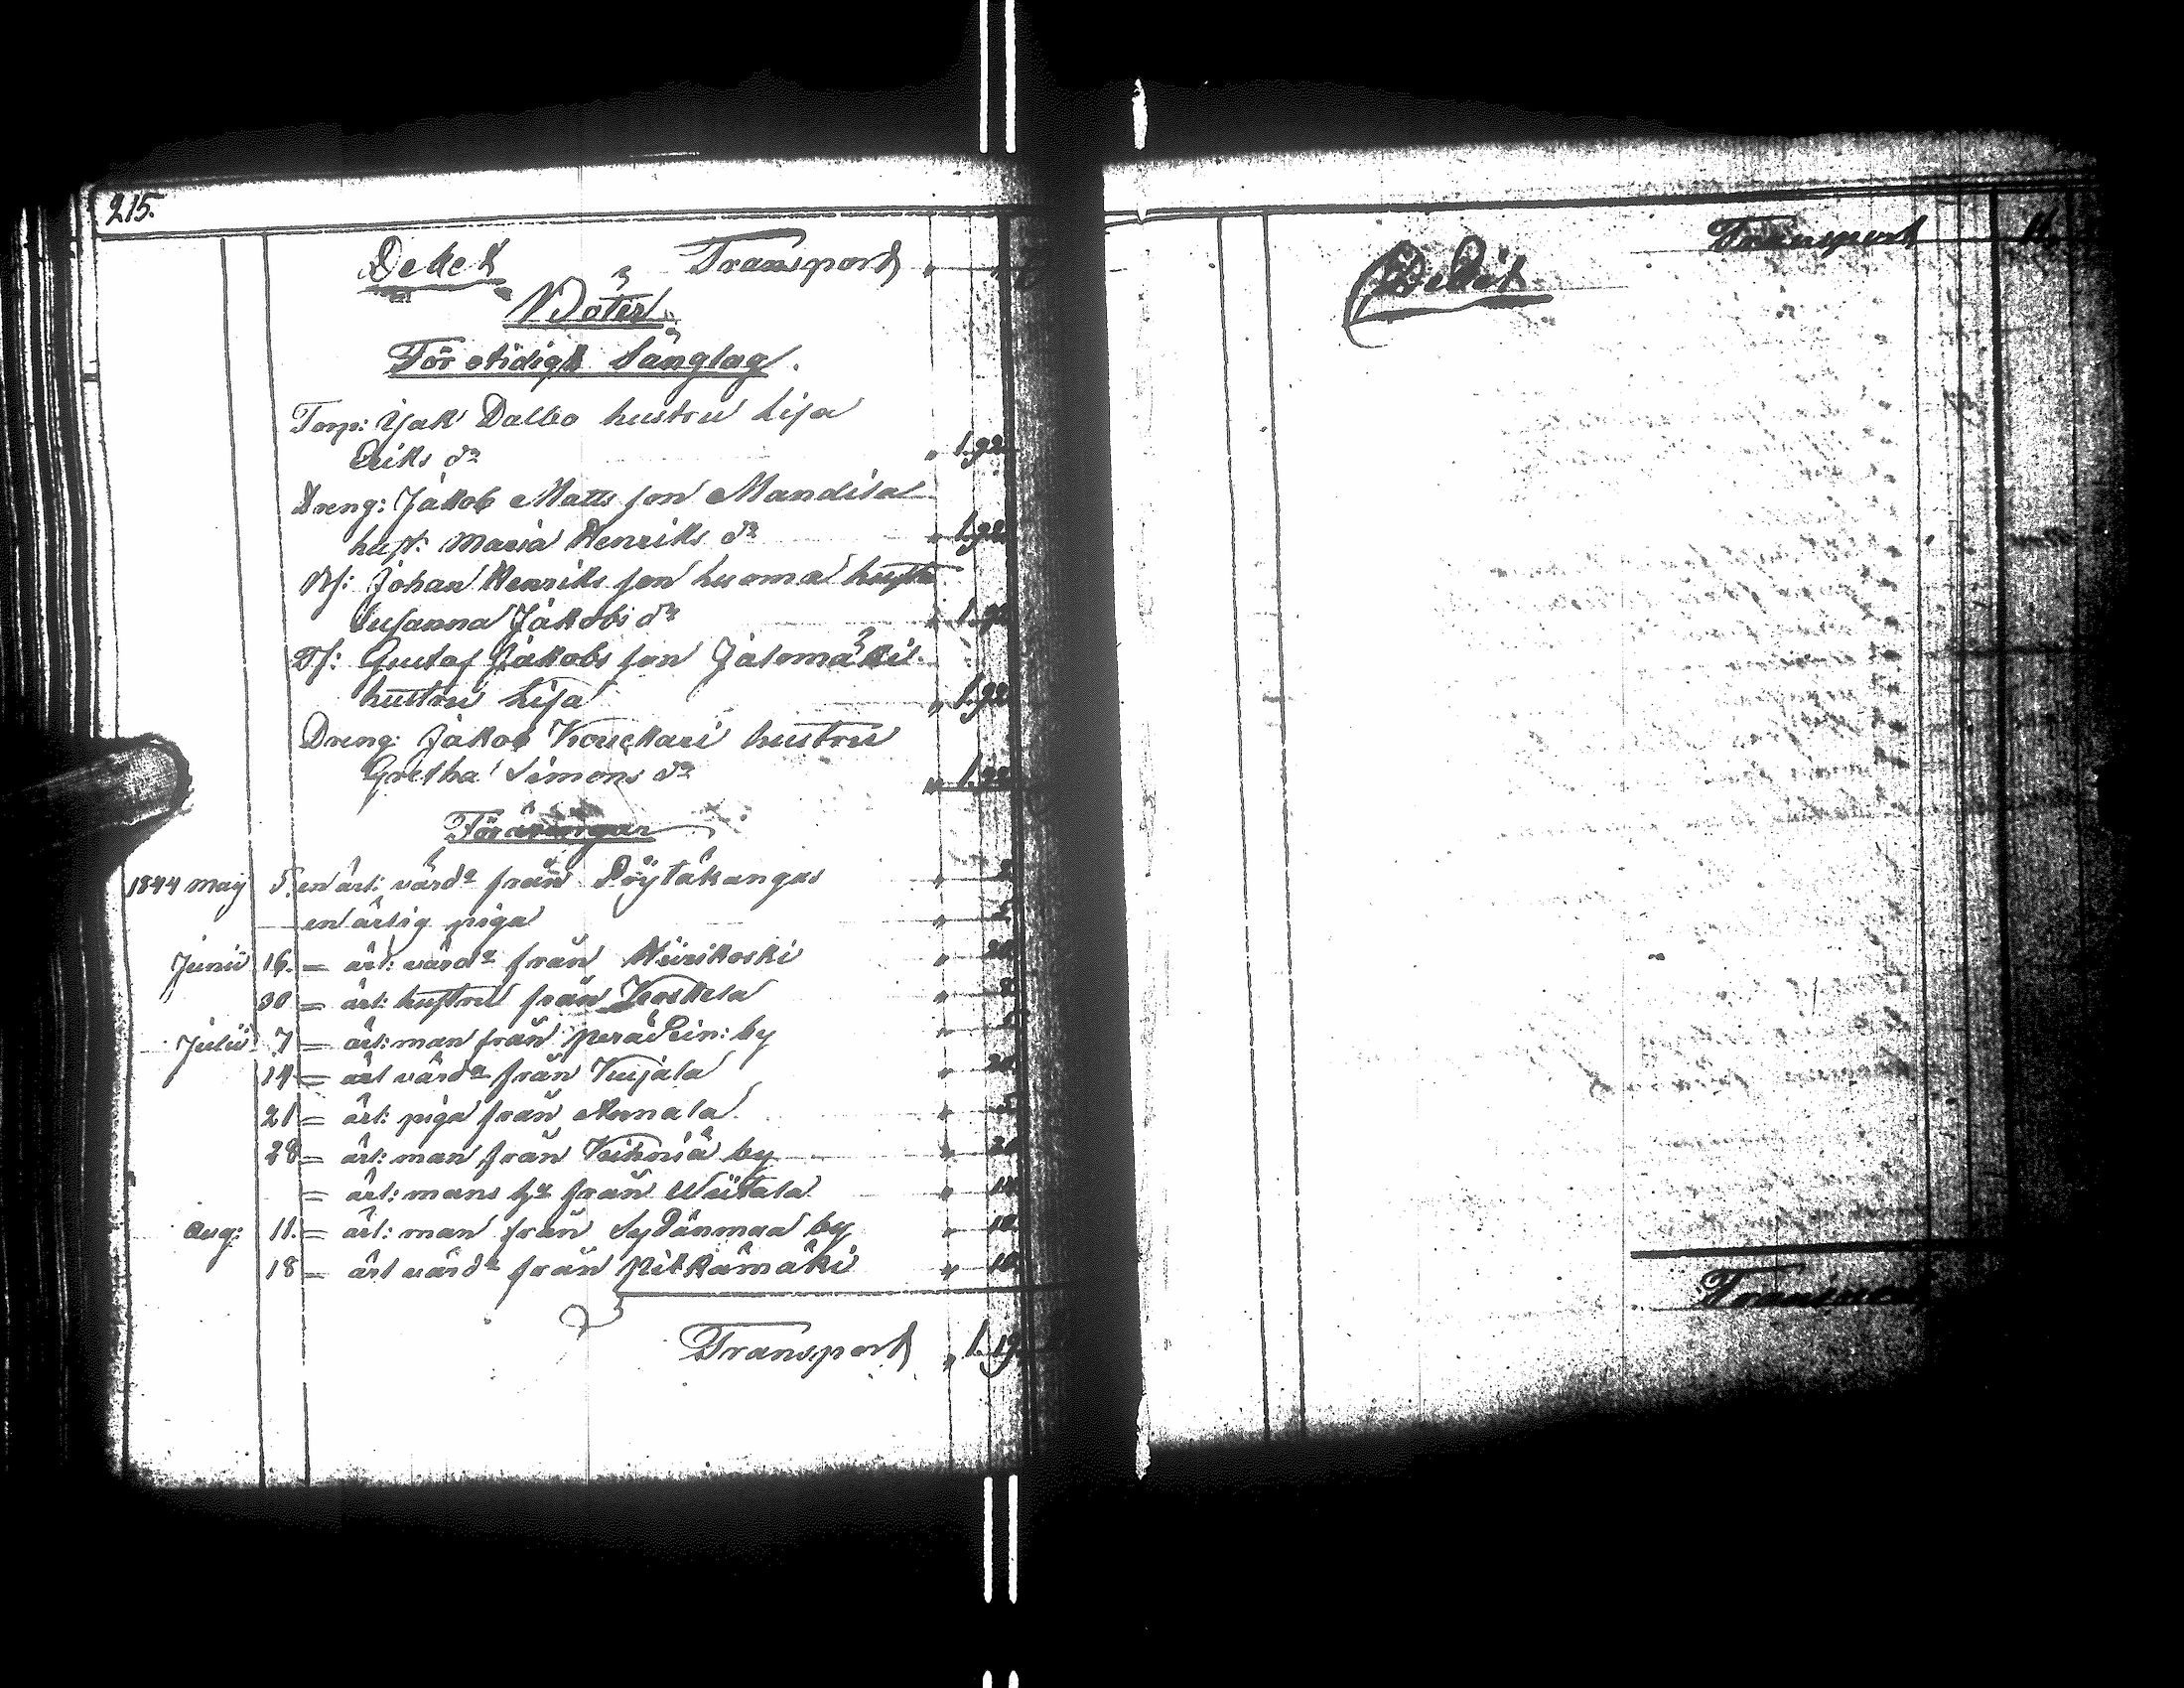 215.
Debet Transport
Böter
För otidigt Sänglag.
Torp: Isak Dalbo hustru Lisa
Eriks dr " 1.92
Dreng: Jakob Matts son Mandila
hust: Maria Henriks dr " 1.92
Johan Henriks son Luoma hustru
Susanna Jakobs dr " 1.92
Gustaf Jakobs son Jalomäki
hustru Lisa " 1.92
Dreng: Jakob Kouckari hustru
Gretha Simons dr " 1.92
Föräringar
1844 Maij 5. en ärl: värda från Pöytäkangas "
en ärlig piga "
Junii 16. = ärl: värda från Hirikoski " 20
30 = ärl: hustru från Koskela "
Julii 7 = ärl: man från perä Sein: by "
14 = ärl värda från Kujala " 20
21 = ärl: piga från Annala "
28 = ärl: man från Kihniä by "
= ärl: mans hr från Wiitala "
Aug: 11. = ärl: man från Sydänmaa by " 10
18 = ärl värda från Pitkämäki " 10
Transport "
Transport 11.
Debet
Transport